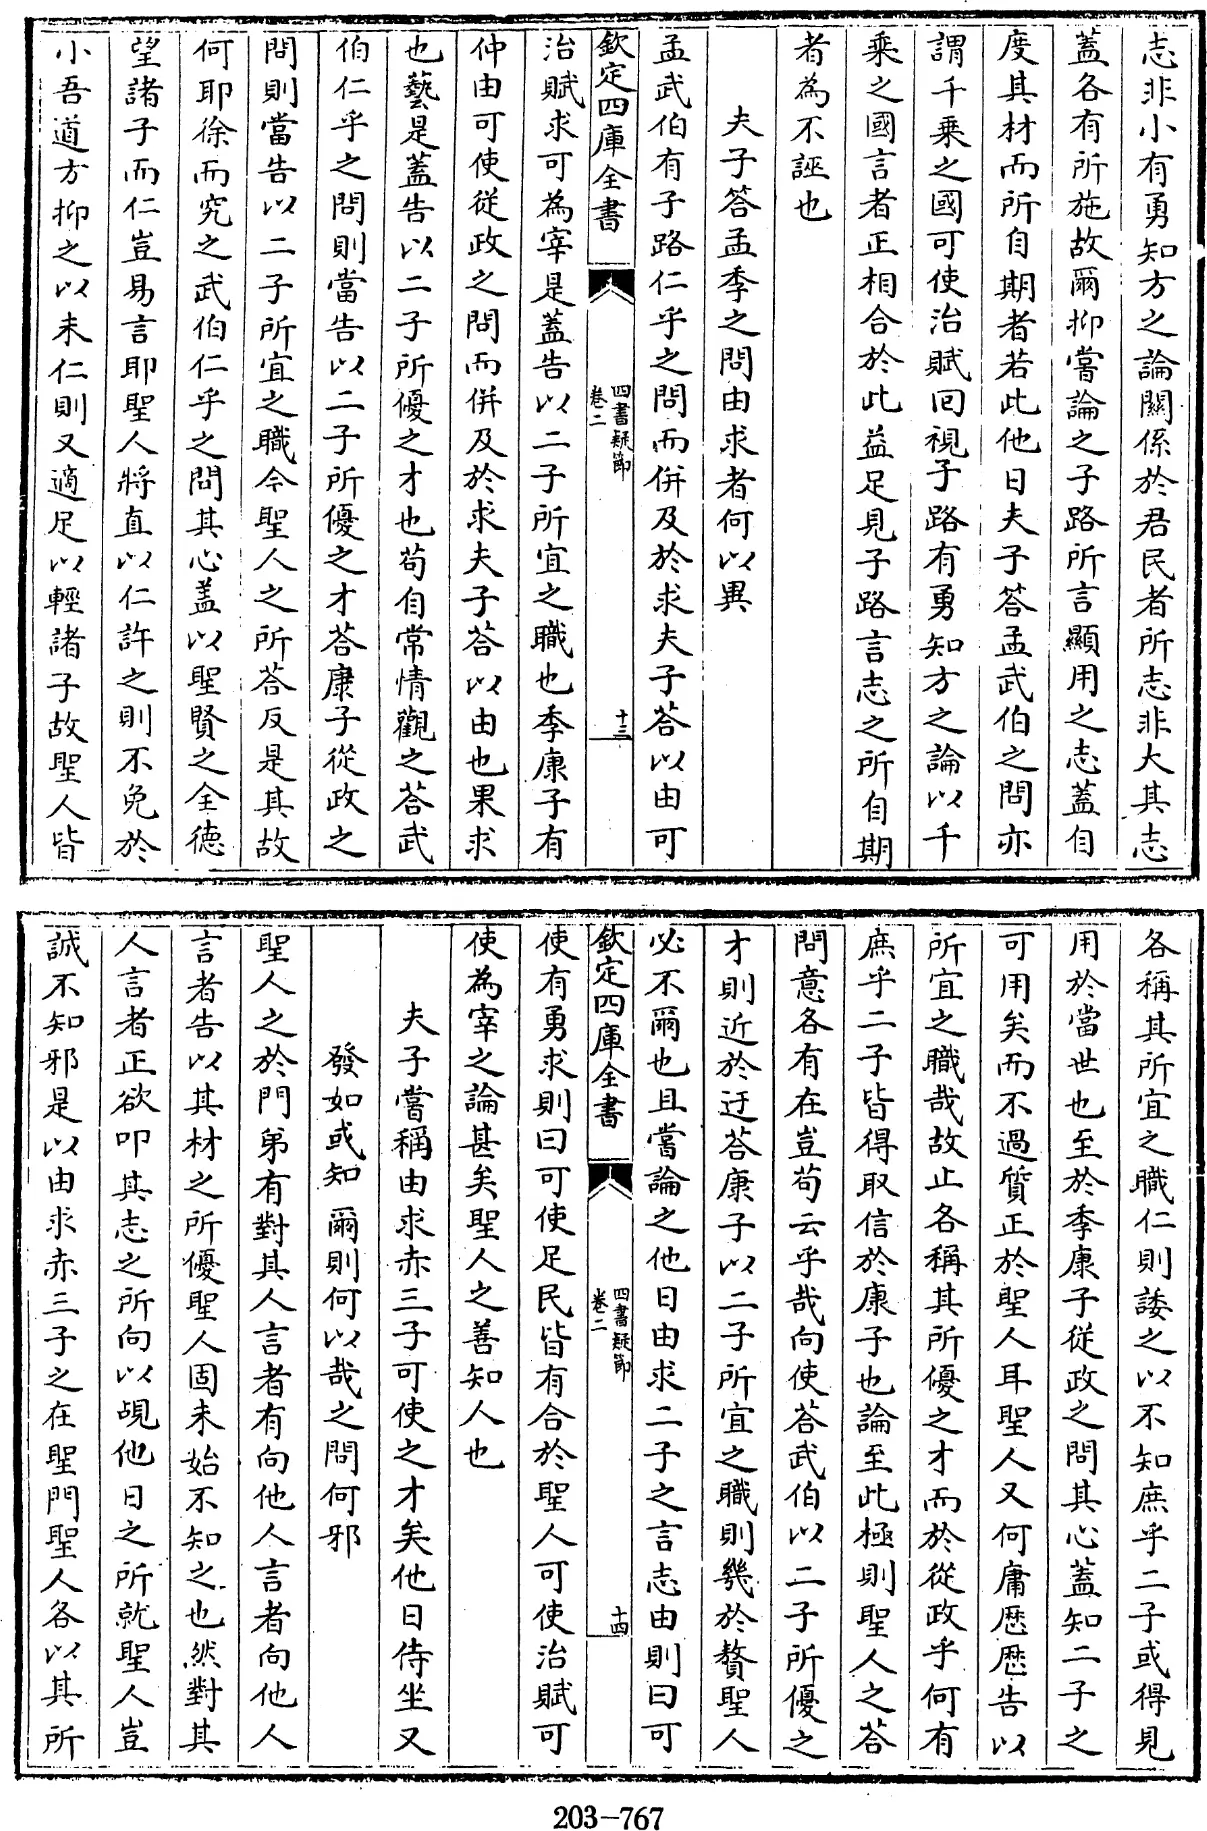 志非小有勇知方之論關係於君民者所志非大其志
蓋各有所施故爾抑嘗論之子路所言顯用之志蓋自
度其材而所自期者若此他日夫子答孟武伯之問亦
謂千乘之國可使治賦回視子路有勇知方之論以千
乘之國言者正相合於此益足見子路言志之所自期
者為不誣也
夫子答孟季之問由求者何以異
孟武伯有子路仁乎之問而併及於求夫子答以由可
欽定四庫全書
四書疑節
卷二
十三
治賦求可為宰是蓋告以二子所宜之職也季康子有
仲由可使從政之問而併及於求夫子答以由也果求
也藝是蓋告以二子所優之才也苟自常情觀之答武
伯仁乎之問則當告以二子所優之才答康子從政之
問則當告以二子所宜之職今聖人之所答反是其故
何耶徐而究之武伯仁乎之問其心蓋以聖賢之全德
望諸子而仁豈易言耶聖人將直以仁許之則不免於
小吾道方抑之以未仁則又適足以輕諸子故聖人皆
各稱其所宜之職仁則諉之以不知庶乎二子或得見
用於當世也至於季康子從政之問其心蓋知二子之
可用矣而不過質正於聖人耳聖人又何庸歷歷告以
所宜之職哉故止各稱其所優之才而於從政乎何有
庶乎二子皆得取信於康子也論至此極則聖人之答
問意各有在豈苟云乎哉向使答武伯以二子所優之
才則近於迂答康子以二子所宜之職則幾於贅聖人
必不爾也且嘗論之他日由求二子之言志由則曰可
欽定四庫全書
四書疑節
卷二
十四
使有勇求則曰可使足民皆有合於聖人可使治賦可
使為宰之論甚矣聖人之善知人也
夫子嘗稱由求赤三子可使之才矣他日侍坐又
發如或知爾則何以哉之問何邪
聖人之於門弟有對其人言者有向他人言者向他人
言者告以其材之所優聖人固未始不知之也然對其
人言者正欲叩其志之所向以覘他日之所就聖人豈
誠不知邪是以由求赤三子之在聖門聖人各以其所
203-767